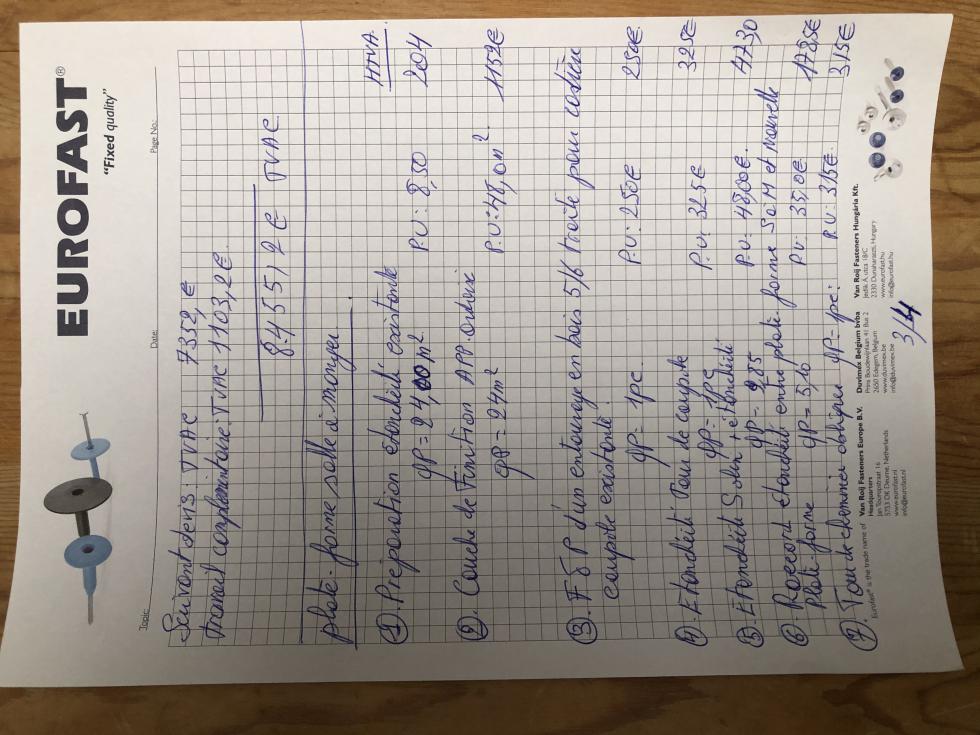 EUROFAST®
"Fixed quality"
Topic:
Date:
Page No.:
Suivant devis: TVAC 7352,€
travail complémentaire: TVAC 1103,2€
8455,2€ TVAC
plate-forme salle à manger.
HTVA.
① Préparation étanchéité existante
qP = 24,00 m² P.U: 8,50 204
② Couche de Finition APP. ardoisé
qP = 24m² P.U: 48,0m². 1152€
③. F & P d'un entourage en bois 5/6 traité pour contrer
coupole existante
qP= 1pc P.U: 250€ 250€
④. Etanchéité Pour de coupole
qP= 1pc P.U: 325€ 325€
⑤. Etanchéité Solin + étanchéité
qP= 9,85 P.U: 48,00€. 4730
⑥. Raccord étanchéité entre plate-forme SàM et nouvelle
Plate-forme qP= 5,10 P.U: 35,0€ 178,5€
⑦. Tour de cheminée oblique qP= 1pc: P.U: 315€. 315€
Eurofast® is the trade name of
Van Roij Fasteners Europe B.V.
Headquarters
Jan Tooropstraat 16
5753 DK Deurne, Netherlands
www.eurofast.nl
info@eurofast.nl
Duvimex Belgium bvba
Prins Boudewijnlaan 41 Bus 2
2650 Edegem, Belgium
www.duvimex.be
info@duvimex.be
Van Roij Fasteners Hungária Kft.
Jedlik Á. utca 18/C
2330 Dunaharaszti, Hungary
www.eurofast.hu
info@eurofast.hu
3/4